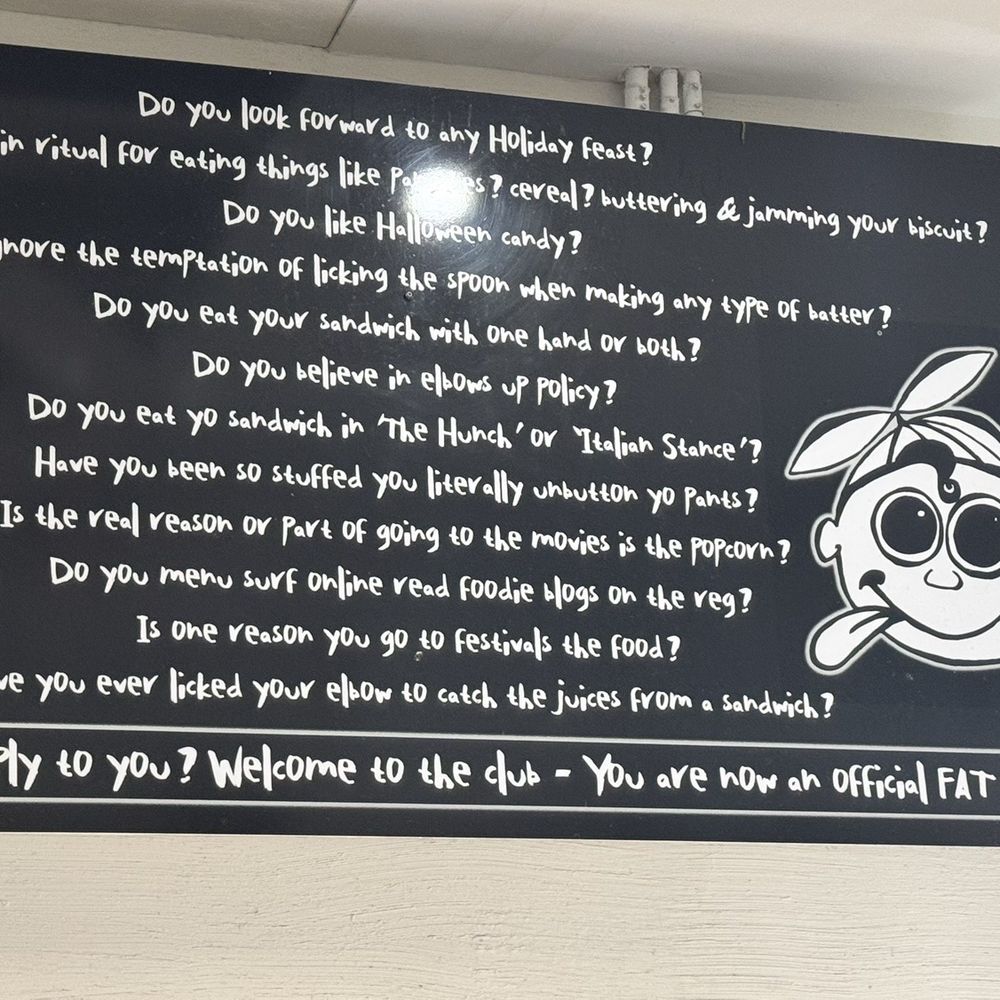 Do you look forward to any Holiday feast?
in ritual for eating things like cereal? buttering & jamming your biscuit?
Do you like Halloween candy?
gnore the temptation of licking the spoon when making any type of batter?
Do you eat your sandwich with one hand or both?
Do you believe in elbows up policy?
Do you eat yo sandwich in 'The Hunch' or 'Italian Stance'?
Have you been so stuffed you literally unbutton yo pants?
Is the real reason or part of going to the movies is the popcorn?
Do you menu surf online read foodie blogs on the reg?
Is one reason you go to festivals the food?
ve you ever licked your elbow to catch the juices from a sandwich?
ply to you? Welcome to the club - You are now an official FAT